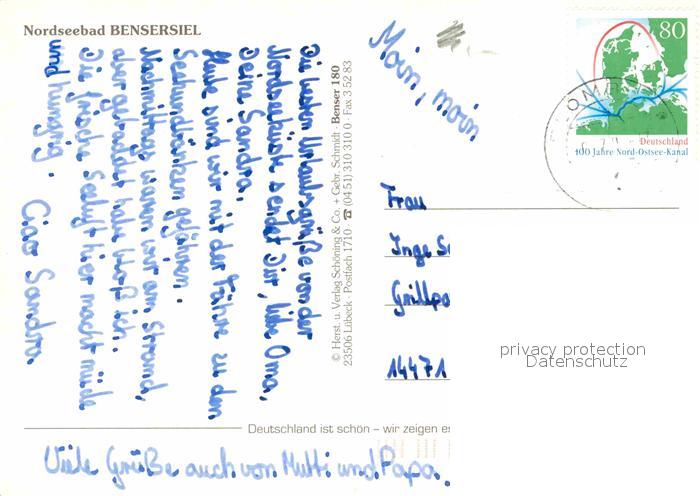 Nordseebad BENSERSIEL
Moin, moin
Die besten Urlaubsgrüße von der
Nordseeküste sendet Dir, liebe Oma,
Deine Sandra.
Heute sind wir mit der Fähre zu den
Seehundbänken gefahren.
Nachmittags waren wir am Strand,
aber gebadet habe bloß ich.
Die frische Seeluft hier macht müde
und hungrig. Ciao Sandra.
© Herst. u. Verlag Schöning & Co. + Gebr. Schmidt Benser 180
23506 Lübeck · Postfach 1710 · ☎ (04 51) 310 310 0 · Fax 3 52 83
80
Deutschland
100 Jahre Nord-Ostsee-Kanal
Frau
Inge
Grillpa
14471
privacy protection
Datenschutz
Deutschland ist schön – wir zeigen es
Viele Grüße auch von Mutti und Papa.